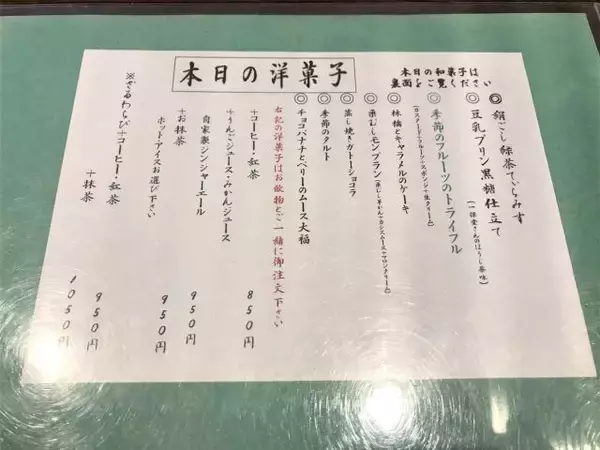 本日の洋菓子
本日の和菓子は
裏面をご覧ください
◎ 絹ごし緑茶てぃらみす
◎ 豆乳プリン黒糖仕立て
(一保堂さんのほうじ茶味)
◎ 季節のフルーツのトライフル
(カスタード+フルーツ+スポンジ+生クリーム)
◎ 林檎とキャラメルのケーキ
◎ 栗むしモンブラン
(栗むし羊かん+カシスムース+マロンクリーム)
◎ 蒸し焼きガトーショコラ
◎ 季節のタルト
◎ チョコバナナとベリーのムース大福
右記の洋菓子はお飲物とご一緒に御注文下さい
+コーヒー・紅茶 850円
+りんごジュース・みかんジュース
自家製ジンジャーエール 950円
+お抹茶 950円
ホット・アイスお選び下さい
※ざるわらび+コーヒー・紅茶 950円
+抹茶 1050円